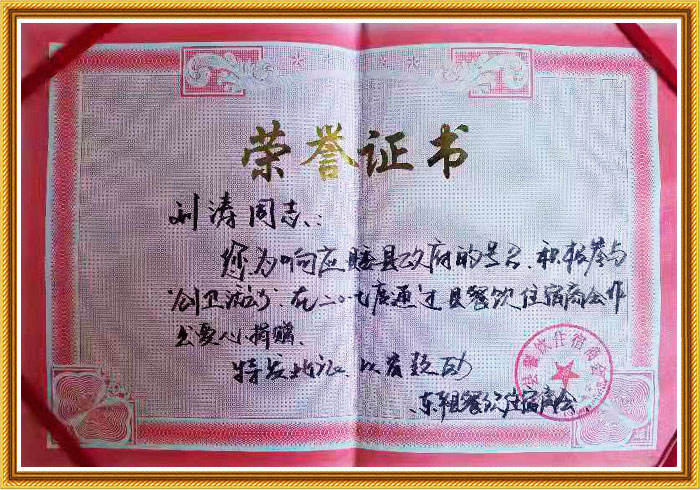 荣誉证书
刘涛同志：
您为响应睢县政府的号召，积极参与
"创卫活动"在二〇一七年度通过县餐饮住宿商会作
出爱心捐赠，
特发此证，以资鼓励
县餐饮住宿商会
县餐饮住宿商会